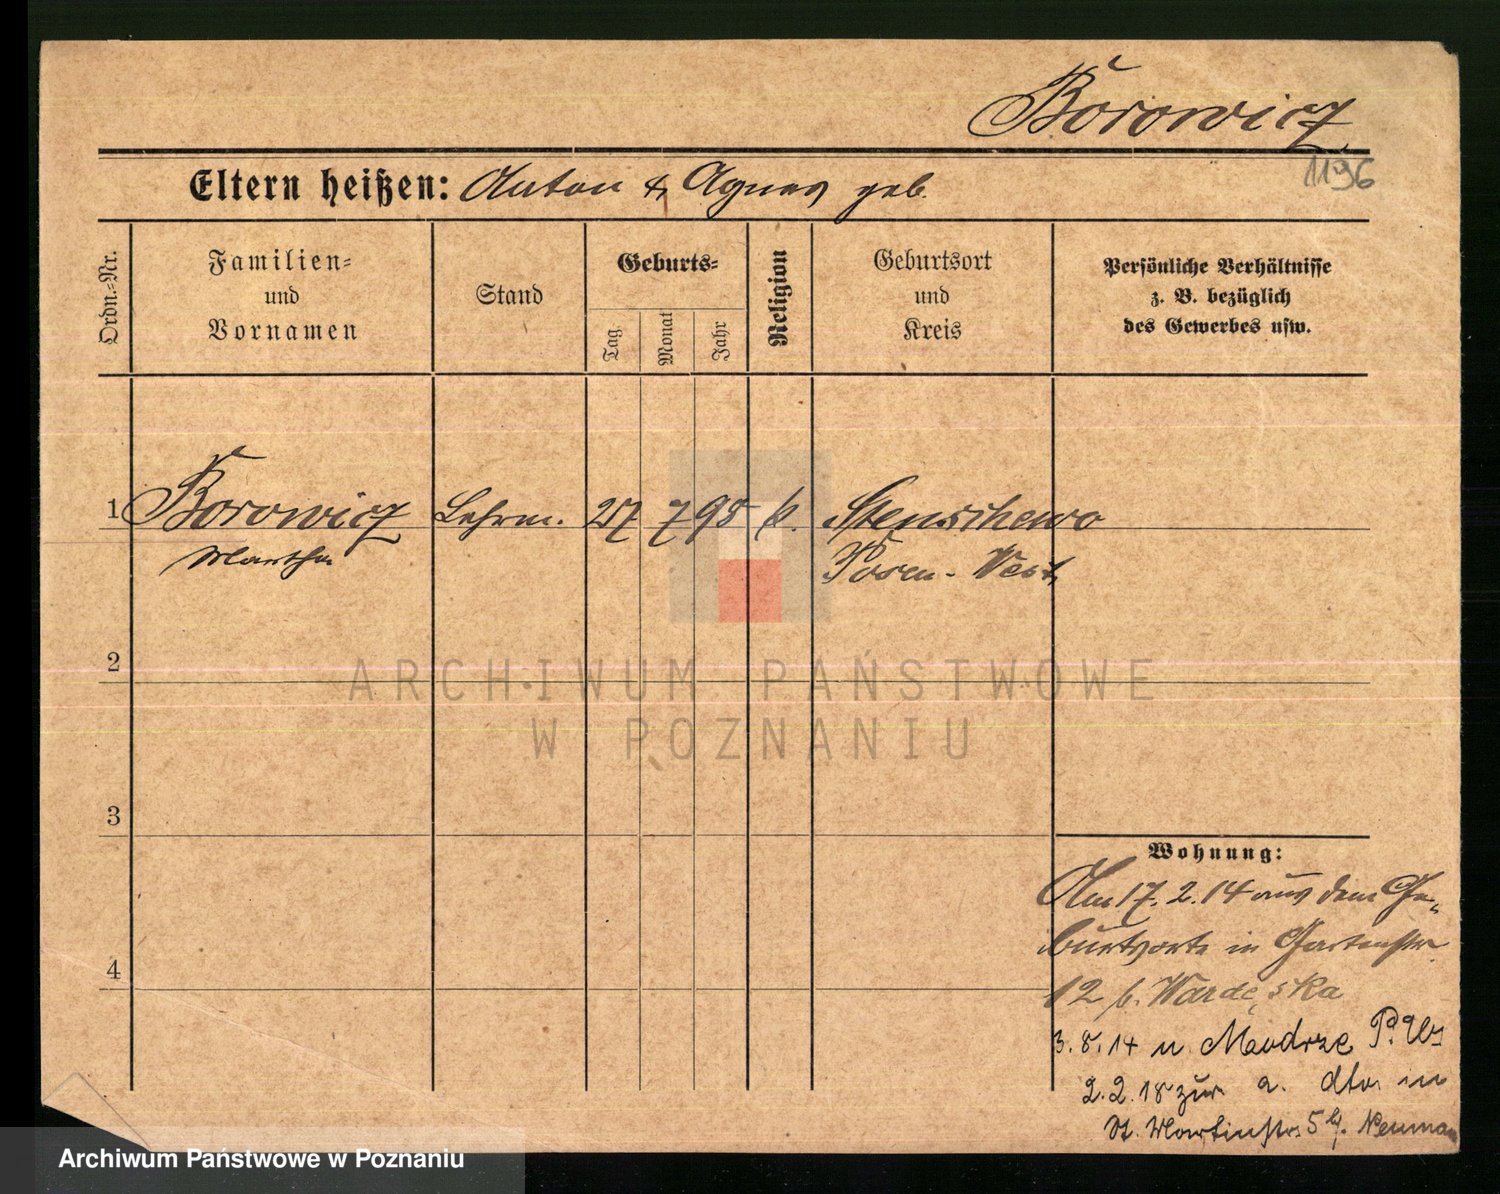 Borowicz
1196
Eltern heißen: Anton & Agnes geb.
Ordn.-Nr.
Familien-
und
Vornamen
Stand
Geburts-
Tag
Monat
Jahr
Religion
Geburtsort
und
Kreis
Persönliche Verhältnisse
z. B. bezüglich
des Gewerbes usw.
1 Borowicz Lehrm. 27 7 98 k. Stenschewo
Martha Posen-West
2
ARCHIWUM PAŃSTWOWE
W POZNANIU
3
Wohnung:
Am 17. 2. 14 aus dem Ge-
burtsorte in Gartenstr
4
12 b. Wardęska
3. 8. 14 n. Modrze P. W
2. 2. 18 zur. a. dto. in
St. Martinstr. 5 b. Neuman
Archiwum Państwowe w Poznaniu